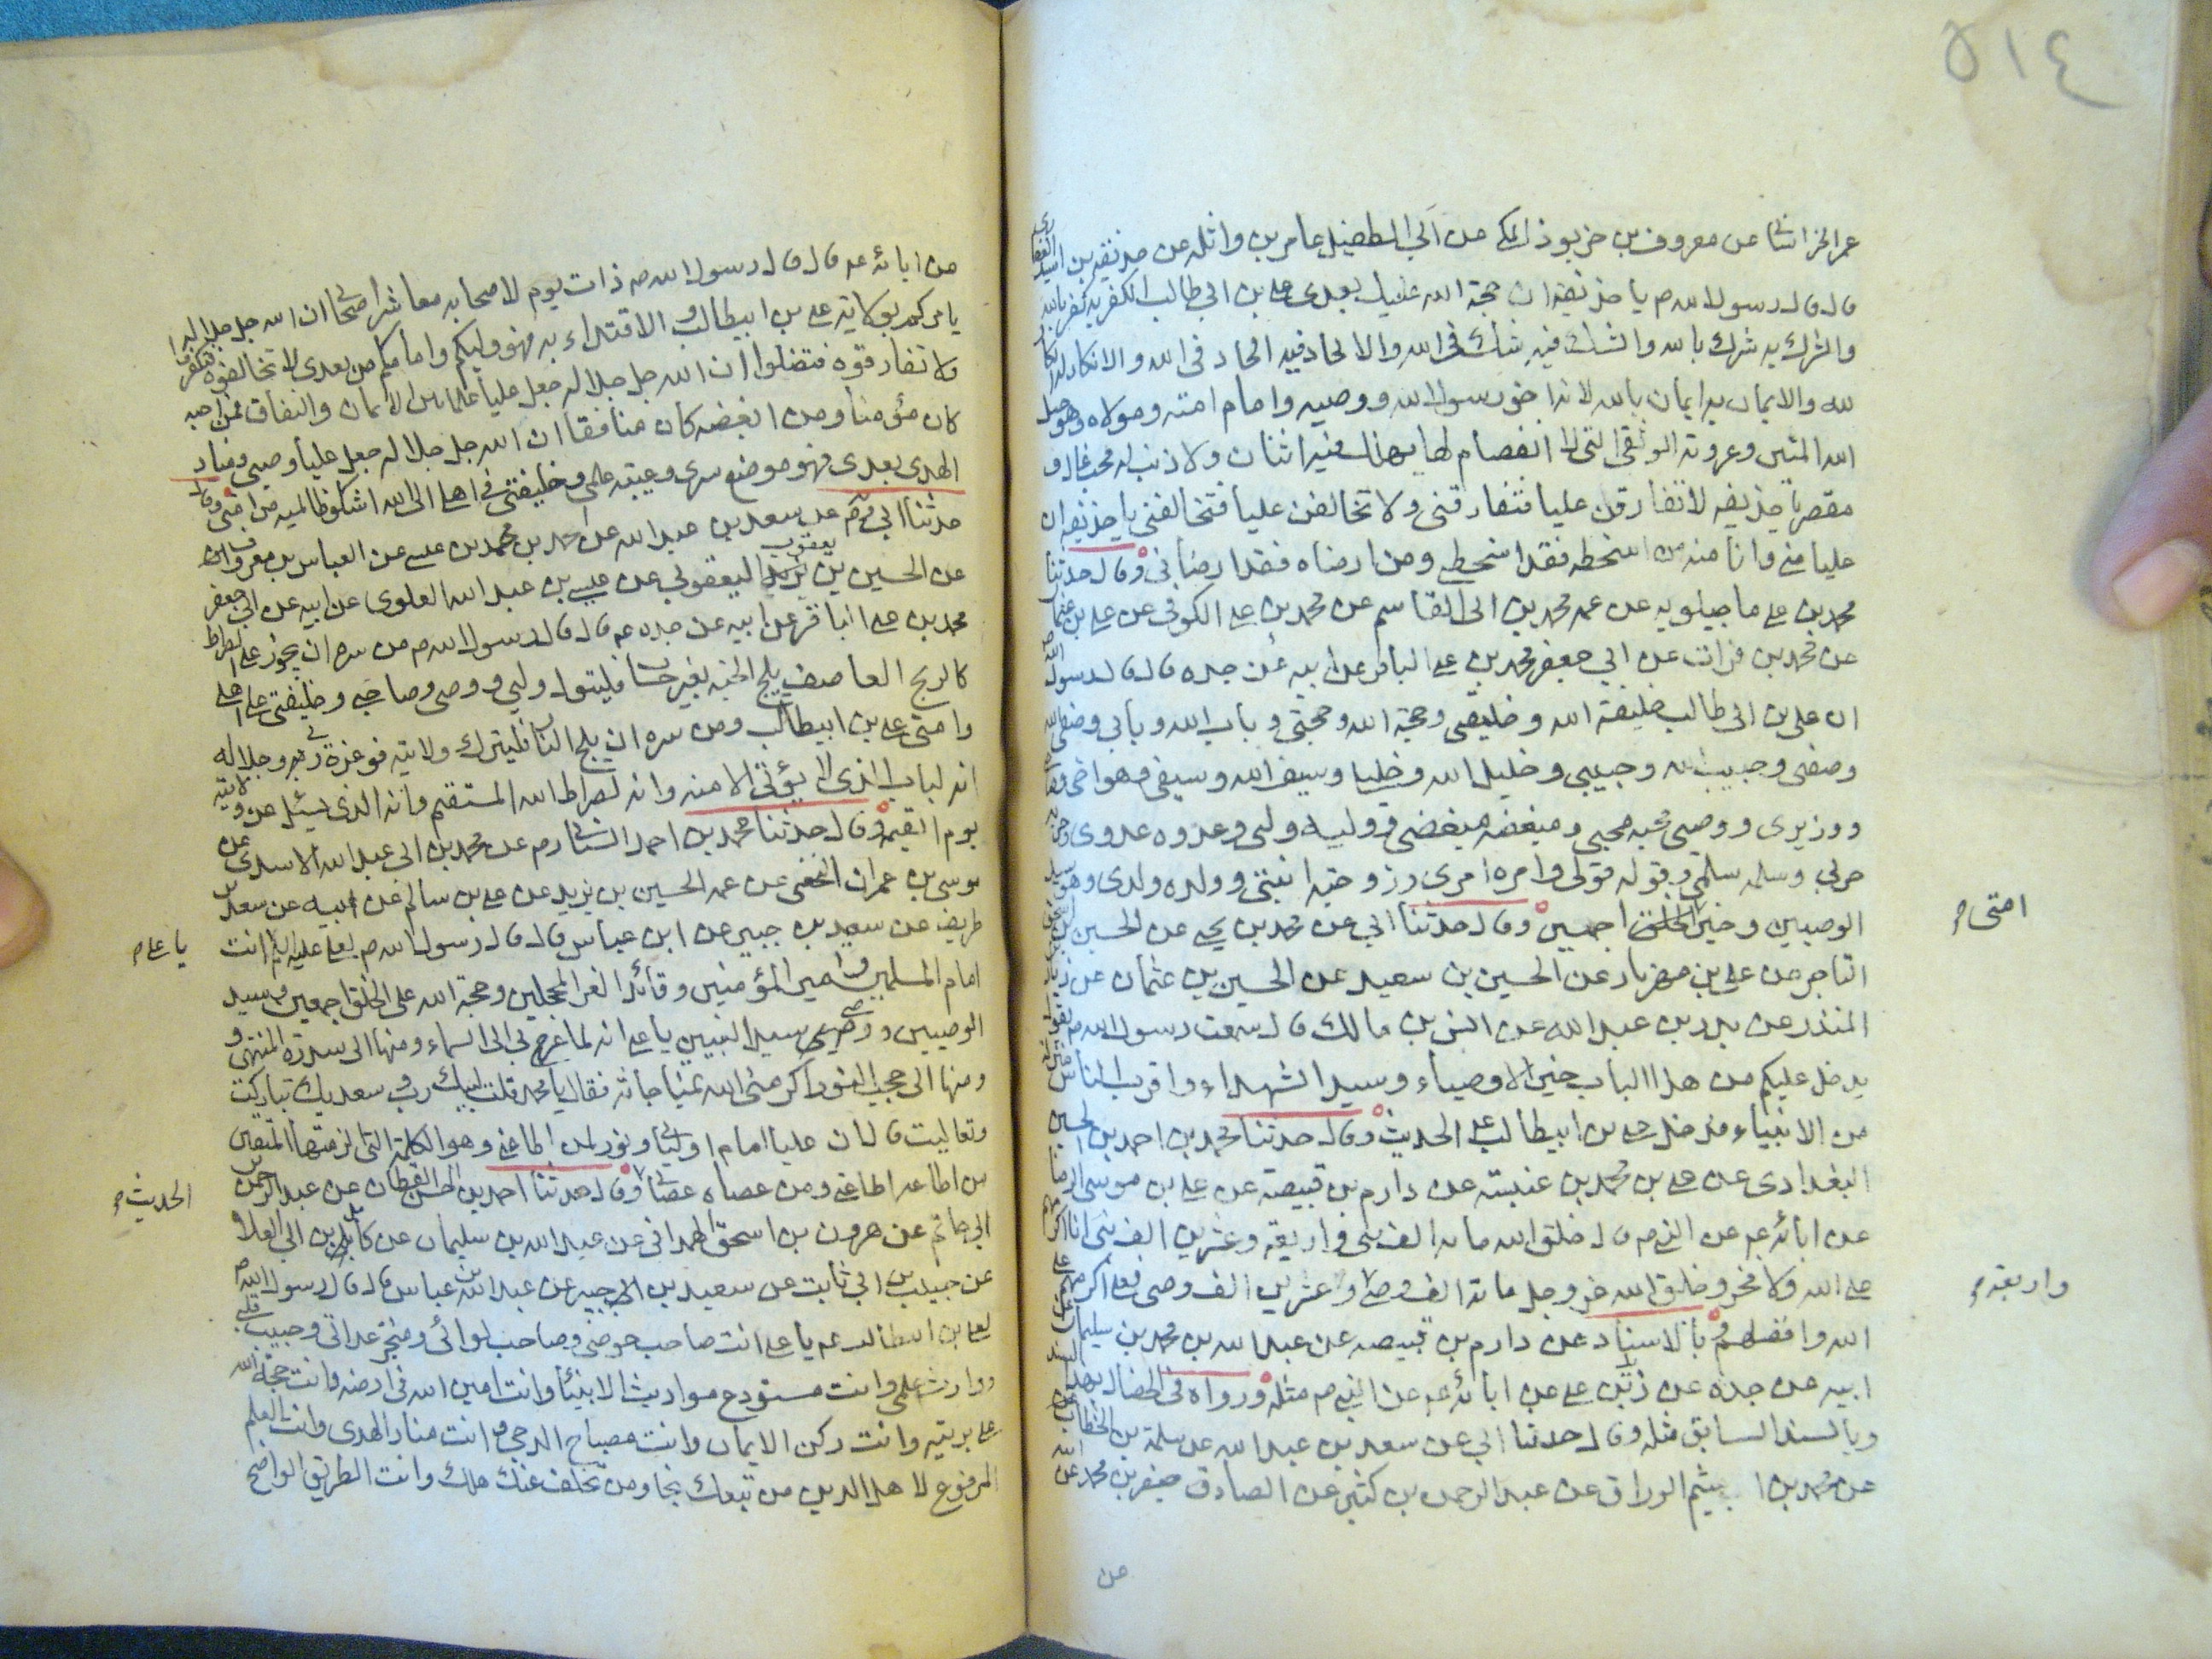 ٥١٤
عن معروف بن خربوذ المكي عن ابي الطفيل عامر بن واثله عن حذيفه بن اسيد الغفاري
قال قال رسول الله ص يا حذيفه ان حجة الله عليك بعدي علي بن ابي طالب الكفر به كفر بالله
والشرك به شرك بالله والشك فيه شك في الله والالحاد فيه الحاد في الله والانكار له انكار
لله والايمان به ايمان بالله لانه اخو رسول الله ووصيه وامام امته ومولاه وهو حبل
الله المتين وعروته الوثقى التي لا انفصام لها يهلك فيه اثنان ولا ذنب له محب غال و
مقصر يا حذيفه لا تفارقن عليا فتفارقني ولا تخالفن عليا فتخالفني يا حذيفه ان
عليا مني وانا منه من اسخطه فقد اسخطني ومن ارضاه فقد ارضاني وقال حدثنا
محمد بن علي ماجيلويه عن عمه محمد بن ابي القاسم عن محمد بن علي الكوفي عن علي بن عثمان
عن محمد بن فرات عن ابي جعفر محمد بن علي الباقر عن ابيه عن جده قال قال رسول الله ص
ان علي بن ابي طالب خليفة الله وخليفتي وحجة الله وحجتي وباب الله وبابي وصفي الله
وصفيي وحبيب الله وحبيبي وخليل الله وخليلي وسيف الله وسيفي وهو اخي
ووزيري ووصيي محبه محبي ومبغضه مبغضي ووليه وليي وعدوه عدوي وحربه
حربي وسلمه سلمي وقوله قولي وامره امري وزوجته ابنتي وولده ولدي وهو سيد
الوصيين وخير امتي اجمعين وقال حدثنا ابي عن محمد بن يحيى عن الحسين
التاجر عن علي بن مهزيار عن الحسين بن سعيد عن الحسين بن عثمان عن
المنذر عن بدر بن عبد الله عن انس بن مالك قال سمعت رسول الله ص يقول
يدخل عليكم من هذا الباب خير الاوصياء وسيد الشهداء واقرب الناس
من الانبياء فدخل علي بن ابيطالب ع الحديث وقال حدثنا محمد بن احمد بن الحسين
البغدادي عن علي بن محمد بن عنبسة عن دارم بن قبيصة عن علي بن موسى الرضا
عن ابائه عم عن النبي ص قال خلق الله مائه الف نبي واربعة وعشرين الف نبي انا اكرمهم
على الله ولا فخر وخلق الله عز وجل مائة الف وصي واربعة وعشرين الف وصي فعلي اكرمهم
الله وافضلهم وبالاسناد عن دارم بن قبيصه عن عبد الله بن محمد بن سليمان
ابيه عن جده عن زيد بن علي عن ابائه عم عن النبي ص مثله ورواه في الخصال بهذا
وبالسند السابق مثله وقال حدثنا ابي عن سعد بن عبد الله عن سلمة بن الخطاب
عن محمد بن الوراق عن عبد الرحمن بن كثير عن الصادق جعفر بن محمد عن
من
امتي ص
واربعة ص
من ابائه عم قال قال رسول الله ص ذات يوم لاصحابه معاشر اصحابي ان الله جل جلاله
يامركم بولاية علي بن ابيطالب والاقتداء به فهو وليكم وامامكم من بعدي لا تخالفوه فتكفروا
ولا تفارقوه فتضلوا ان الله جل جلاله جعل عليا علما بين الايمان والنفاق فمن احبه
كان مؤمنا ومن ابغضه كان منافقا ان الله جل جلاله جعل عليا وصيي ومنار
الهدى بعدي فهو موضع سري وعيبة علمي وخليفتي في اهلي الى الله اشكو ظالميه من امتي وقال
حدثنا ابي عن سعد بن عبد الله عن احمد بن محمد بن عيسى عن العباس بن معروف
عن الحسين بن يزيد اليعقوبي عن عيسى بن عبد الله العلوي عن ابيه عن ابي جعفر
يعقوب
محمد بن علي الباقر عن ابيه عن جده عم قال قال رسول الله ص من سره ان يجوز على الصراط
كالريح العاصف ويلج الجنه بغير حساب فليتول وليي ووصيي وصاحبي وخليفتي على اهلي
وامتي علي بن ابيطالب ومن سره ان يلج النار فليترك ولايته فوعزة ربي وجلاله
انه لباب الله الذي لا يؤتى الا منه وانه لصراط الله المستقيم وانه الذي يسئل عن ولايته
يوم القيمه وقال حدثنا محمد بن احمد الشيباني عن محمد بن ابي عبد الله الاسدي عن
موسى بن عمران النخعي عن عمه الحسين بن يزيد عن علي بن سالم عن ابيه عن سعد بن
طريف عن سعيد بن جبير عن ابن عباس قال قال رسول الله ص لعلي عليه السلام انت
امام المسلمين وامير المؤمنين وقائد الغر المحجلين وحجة الله على الخلق اجمعين وسيد
الوصيين ووصي سيد النبيين يا علي انه لما عرج بي الى السماء ومنها الى سدرة المنتهى و
ومنها الى حجب النور واكرمني الله بمناجاته فقال يا محمد قلت لبيك رب وسعديك تباركت
وتعاليت قال ان عليا امام اوليائي ونور لمن اطاعني وهو الكلمة التي الزمتها المتقين
من اطاعه اطاعني ومن عصاه عصاني وقال حدثنا احمد بن الحسن القطان عن عبد الرحمن بن
ابي حاتم عن هرون بن اسحق الهمداني عن عبد الله بن سليمان عن كامل بن ابي العلا
عن حبيب بن ابي ثابت عن سعيد بن جبير عن عبد الله بن عباس قال قال رسول الله ص
لعلي بن ابيطالب عم يا علي انت صاحب حوضي وصاحب لوائي ومنجز عداتي وحبيب قلبي
ووارث علمي وانت مستودع مواريث الانبياء وانت امين الله في ارضه وانت حجة الله
على بريته وانت ركن الايمان وانت مصباح الدجى وانت منار الهدى وانت العلم
المرفوع لاهل الدين من تبعك نجا ومن تخلف عنك هلك وانت الطريق الواضح
يا علي ص
الحديث ص